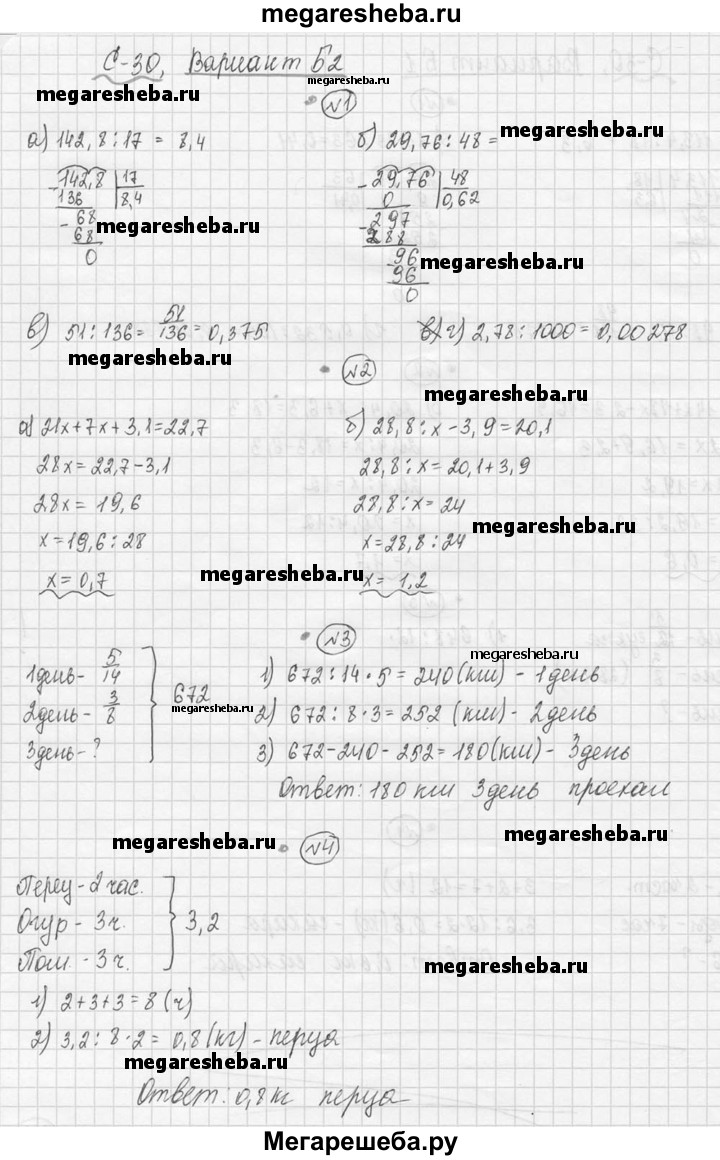 megaresheba.ru
С-30, Вариант Б2
megaresheba.ru
megaresheba.ru
№1
а) 142,8 : 17 = 8,4
б) 29,76 : 48 =
megaresheba.ru
-142,8 | 17
136 8,4
- 68
68
0
megaresheba.ru
-29,76 | 48
0 0,62
- 297
288
- 96
96
0
megaresheba.ru
в) 51 : 136 = 51/136 = 0,375
г) 2,78 : 1000 = 0,00278
megaresheba.ru
№2
megaresheba.ru
а) 21x + 7x + 3,1 = 22,7
28x = 22,7 - 3,1
28x = 19,6
x = 19,6 : 28
x = 0,7
б) 28,8 : x - 3,9 = 20,1
28,8 : x = 20,1 + 3,9
28,8 : x = 24
x = 28,8 : 24
x = 1,2
megaresheba.ru
megaresheba.ru
№3
megaresheba.ru
1день - 5/14
2день - 3/8
3день - ?
672
megaresheba.ru
1) 672 : 14 · 5 = 240 (км) - 1день
2) 672 : 8 · 3 = 252 (км) - 2день
3) 672 - 240 - 252 = 180 (км) - 3день
Ответ: 180 км 3день проехал
megaresheba.ru
megaresheba.ru
№4
Перец - 2 час.
Огур - 3 ч.
Пом. - 3 ч.
3,2
megaresheba.ru
1) 2 + 3 + 3 = 8 (ч)
2) 3,2 : 8 · 2 = 0,8 (кг) - перца
megaresheba.ru
Ответ: 0,8 кг перца
Мегарешеба.ру